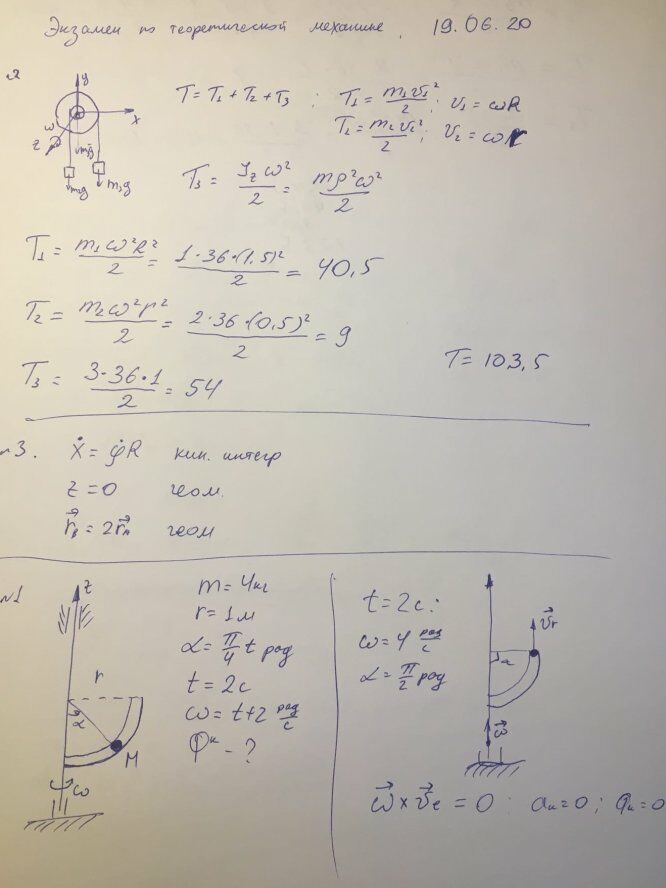 Экзамен по теоретической механике. 19.06.20
2
y
x
z
ω
mg
m₂g
m₁g
T = T₁ + T₂ + T₃ ; T₁ = m₁v₁²/2 ; v₁ = ωR
T₂ = m₂v₂²/2 ; v₂ = ωr
T₃ = J_z ω²/2 = mρ²ω²/2
T₁ = m₁ω²R²/2 = 1·36·(1,5)²/2 = 40,5
T₂ = m₂ω²r²/2 = 2·36·(0,5)²/2 = 9
T₃ = 3·36·1/2 = 54
T = 103,5
№3. ẋ = φ̇R кин. интегр
z = 0 геом.
r⃗_B = 2r⃗_A геом
№1
z
r
α
M
ω
m = 4кг
r = 1м
α = π/4 t рад
t = 2с
ω = t+2 рад/с
Φᵏ - ?
t = 2с:
ω = 4 рад/с
α = π/2 рад
v⃗r
α
ω⃗
ω⃗ × v⃗e = 0 ; aₖ = 0 ; Φₖ = 0